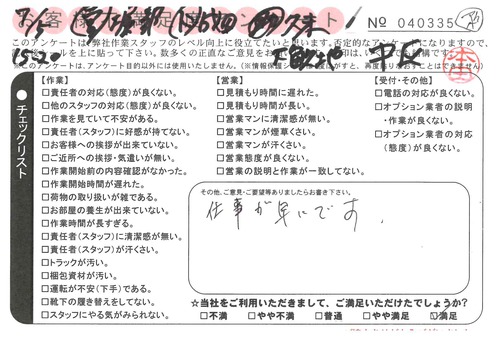 お客様
アンケート
No 040335
このアンケートは弊社作業スタッフのレベル向上に役立てたいと思います。否定的なアンケートになりますので、
【作業】
□責任者の対応(態度)が良くない。
□他のスタッフの対応(態度)が良くない。
□作業を見ていて不安がある。
□責任者(スタッフ)に好感が持てない。
□お客様への挨拶が出来ていない。
□ご近所への挨拶・気遣いが無い。
□作業開始前の内容確認がなかった。
□作業開始時間が遅れた。
□荷物の取り扱いが雑である。
□お部屋の養生が出来ていない。
□作業時間が長すぎる。
□責任者(スタッフ)に清潔感が無い。
□責任者(スタッフ)が汗くさい。
□トラックが汚い。
□梱包資材が汚い。
□運転が不安(下手)である。
□靴下の履き替えをしてない。
□スタッフにやる気がみられない。
【営業】
□見積もり時間に遅れた。
□見積もり時間が長い。
□営業マンに清潔感が無い。
□営業マンが煙草くさい。
□営業マンが汗くさい。
□営業態度が良くない。
□営業の説明と作業が一致してない。
【受付・その他】
□電話の対応が良くない。
□オプション業者の説明
・作業が良くない。
□オプション業者の対応
(態度)が良くない。
チェックリスト
その他、ご意見・ご要望等ありましたらお書き下さい。
仕事が早いです。
☆当社をご利用いただきまして、ご満足いただけたでしょうか?
□不満 □やや不満 □普通 □やや満足 ☑満足